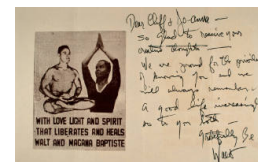 WITH LOVE LIGHT AND SPIRIT
THAT LIBERATES AND HEALS
WALT AND MAGANA BAPTISTE
Dear Cliff & Jo-anne -
so glad to receive your
thoughts -
We are proud for the privilege
of knowing you and we
will always remember -
A good life increasingly
so to you both -
Gratefully Be
Walt